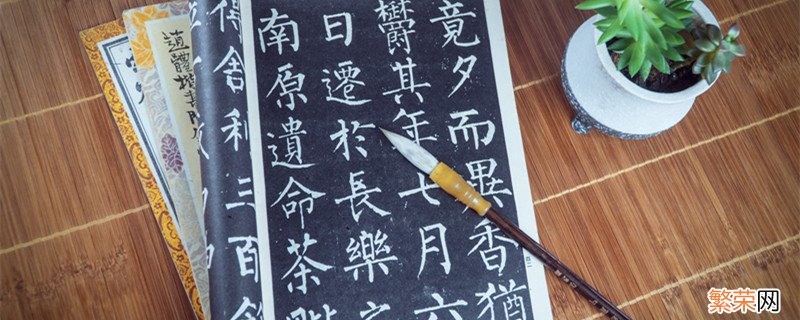 竟夕而異香猶
鬱其年七月六
日遷於長樂
南原遺命茶
得舍利三百
繁荣网